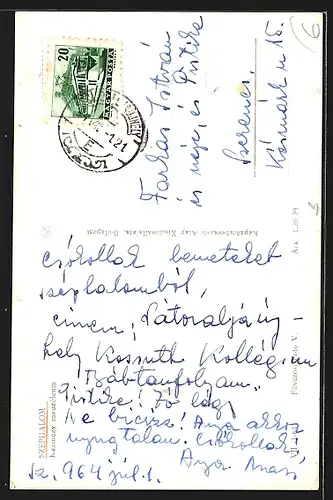 20
MAGYAR POSTA
6
Farkas István
és neje, és Pistike
Szerencs,
Késmárk u 15.
Képzőművészeti Alap Kiadóvállalata, Budapest
Ára 1,20 Ft
SZÉPHALOM
Kazinczy mauzóleum
Csókollak benneteket
Széphalomból,
címem, Sátoraljaúj-
hely Kossuth Kollégium
Bábtanfolyam.
Pistike! Jó légy
Ne bicizz! Anya akkor
nyugtalan. Csókollak
Anya
Sz, 964 júl. 1.